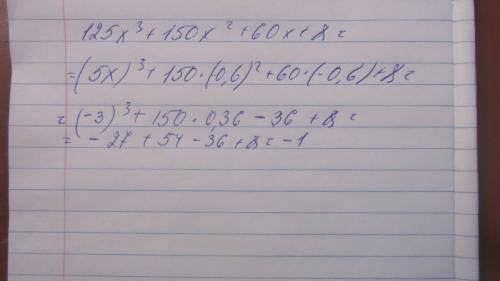 125x³ + 150x² + 60x + 8 =
= (5x)³ + 150·(0,6)² + 60·(-0,6) + 8 =
= (-3)³ + 150·0,36 - 36 + 8 =
= - 27 + 54 - 36 + 8 = - 1